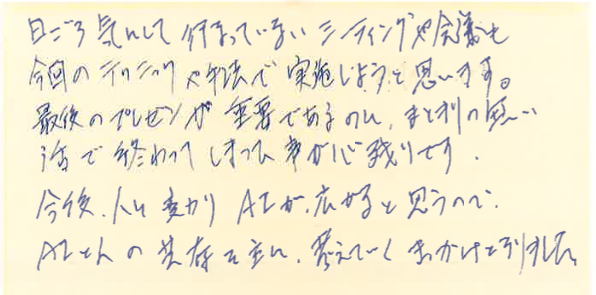 日ごろ気にして行なっていないミーティングや会議も
今回のテクニックや手法で実施しようと思います。
最後のプレゼンが重要であるのに、まとまりの悪い
話で終わってしまった事が心残りです。
今後、人に変わりAIが広がると思うので、
AIと人の共存を主に、考えていくきっかけとなりました。